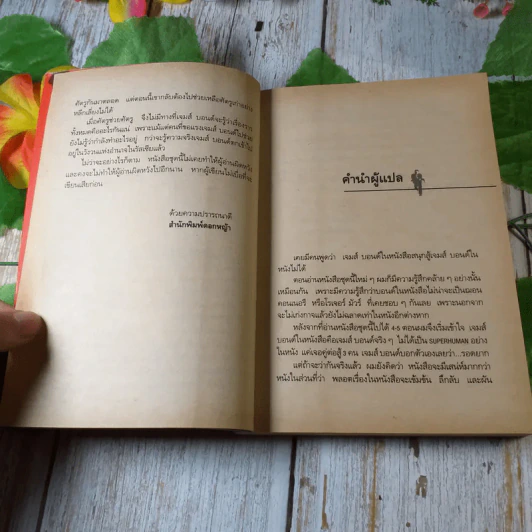 ศัตรูกันมาตลอด แต่ตอนนี้เขากลับต้องไปช่วยเหลือศัตรูเก่าอย่าง
หลีกเลี่ยงไม่ได้
เมื่อศัตรูช่วยศัตรู จึงไม่มีทางที่เจมส์ บอนด์จะรู้ว่าเรื่องราว
ทั้งหมดคืออะไรกันแน่ เพราะแม้แต่คนที่ขอแรงเจมส์ บอนด์ไปช่วย
ยังไม่รู้ว่ากำลังทำอะไรอยู่ กว่าจะรู้ความจริงเจมส์ บอนด์
อยู่ในวังวนแห่งอำนาจในรัสเซียแล้ว
ไม่ว่าจะอย่างไรก็ตาม หนังสือชุดนี้ไม่เคยทำให้ผู้อ่านผิดหวัง
และคงจะไม่ทำให้ผู้อ่านผิดหวังไปอีกนาน หากผู้เขียนไม่
เขียนเสียก่อน
ด้วยความปรารถนาดี
สำนักพิมพ์ดอกหญ้า
คำนำผู้แปล
เคยมีคนพูดว่า เจมส์ บอนด์ในหนังสือสนุกสู้เจมส์ บอนด์ใน
หนังไม่ได้
ตอนอ่านหนังสือชุดนี้ใหม่ ๆ ผมก็มีความรู้สึกคล้าย ๆ อย่างนั้น
เหมือนกัน เพราะมีความรู้สึกว่าบอนด์ในหนังสือไม่น่าจะเป็นฌอน
คอนเนอรี หรือโรเจอร์ มัวร์ ที่เคยชอบ ๆ กันเลย เพราะนอกจาก
จะไม่เก่งกาจแล้วยังไม่ฉลาดเท่าในหนังอีกต่างหาก
หลังจากที่อ่านหนังสือชุดนี้ไปได้ 4-5 ตอนผมจึงเริ่มเข้าใจ เจมส์
บอนด์ในหนังสือคือเจมส์ บอนด์จริง ๆ ไม่ได้เป็น SUPERHUMAN อย่าง
ในหนัง แค่เจอคู่ต่อสู้ 3 คน เจมส์ บอนด์บอกตัวเองเลยว่า...รอดยาก
แต่ถ้าจะว่ากันจริงแล้ว ผมยังคิดว่า หนังสือจะมีเสน่ห์มากกว่า
หนังในส่วนที่ว่า พลอตเรื่องในหนังสือจะเข้มข้น ลึกลับ และผัน